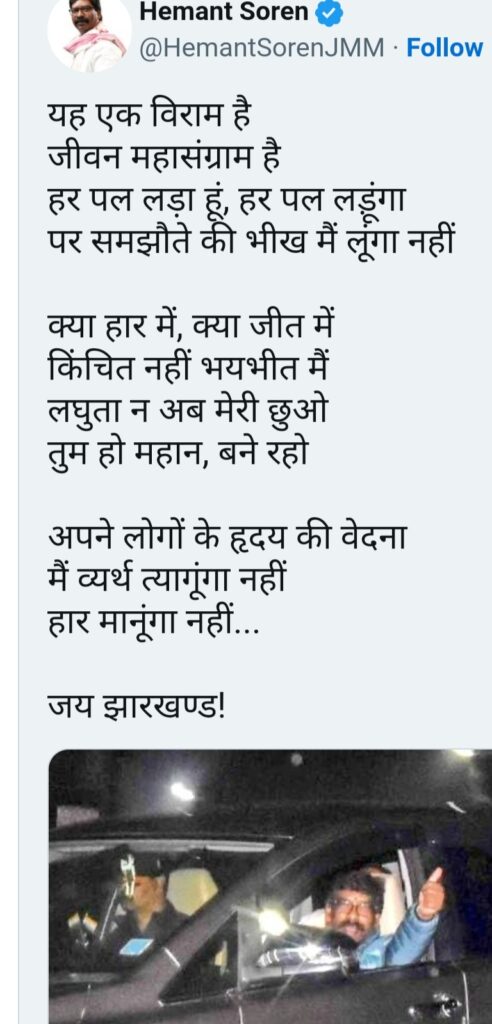 Hemant Soren
@HemantSorenJMM · Follow
यह एक विराम है
जीवन महासंग्राम है
हर पल लड़ा हूं, हर पल लड़ूंगा
पर समझौते की भीख मैं लूंगा नहीं
क्या हार में, क्या जीत में
किंचित नहीं भयभीत मैं
लघुता न अब मेरी छुओ
तुम हो महान, बने रहो
अपने लोगों के हृदय की वेदना
मैं व्यर्थ त्यागूंगा नहीं
हार मानूंगा नहीं...
जय झारखण्ड!